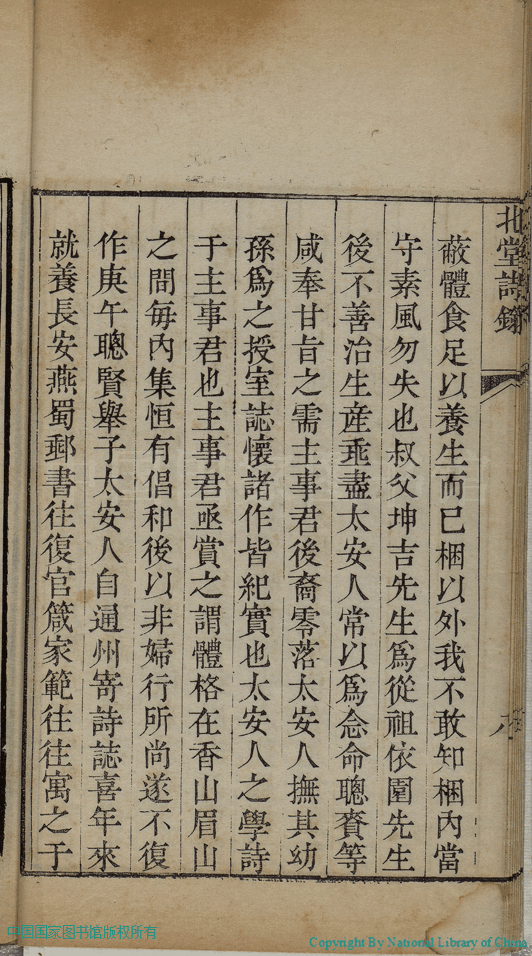 北堂詩鈔
蔽體食足以養生而已梱以外我不敢知梱内當
守素風勿失也叔父坤吉先生爲從祖依園先生
後不善治生産垂盡太安人常以爲念命聰賚等
咸奉甘旨之需主事君後裔零落太安人撫其幼
孫爲之授室誌懷諸作皆紀實也太安人之學詩
于主事君也主事君亟賞之謂體格在香山眉山
之間每内集恒有倡和後以非婦行所尚遂不復
作庚午聰賢舉子太安人自通州寄詩誌喜年來
就養長安燕蜀郵書往復官箴家範往往寓之于
中国国家图书馆版权所有
Copyright By National Library of China